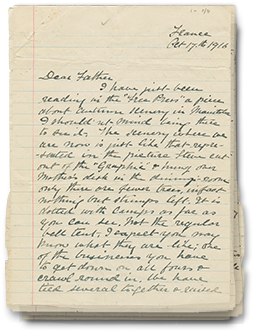 France
Oct 17th 1916
Dear Father
I have just been
reading in the "Free Press" a piece
about autumn scenery in Manitoba
I should not mind being there
to end. The scenery where we
are now is just like that repre-
sented in the picture Steve cut
out of the "Graphic" & hung over
Mother's desk in the dining-room
only there are fewer trees, in fact
nothing but stumps left. It is
dotted with camps as far as
you can see, not the regular
bell tent, I expect you may
know what they are like; one
of the businesses you have
to get down on all fours &
crawl round in. We have
tied several together & raised